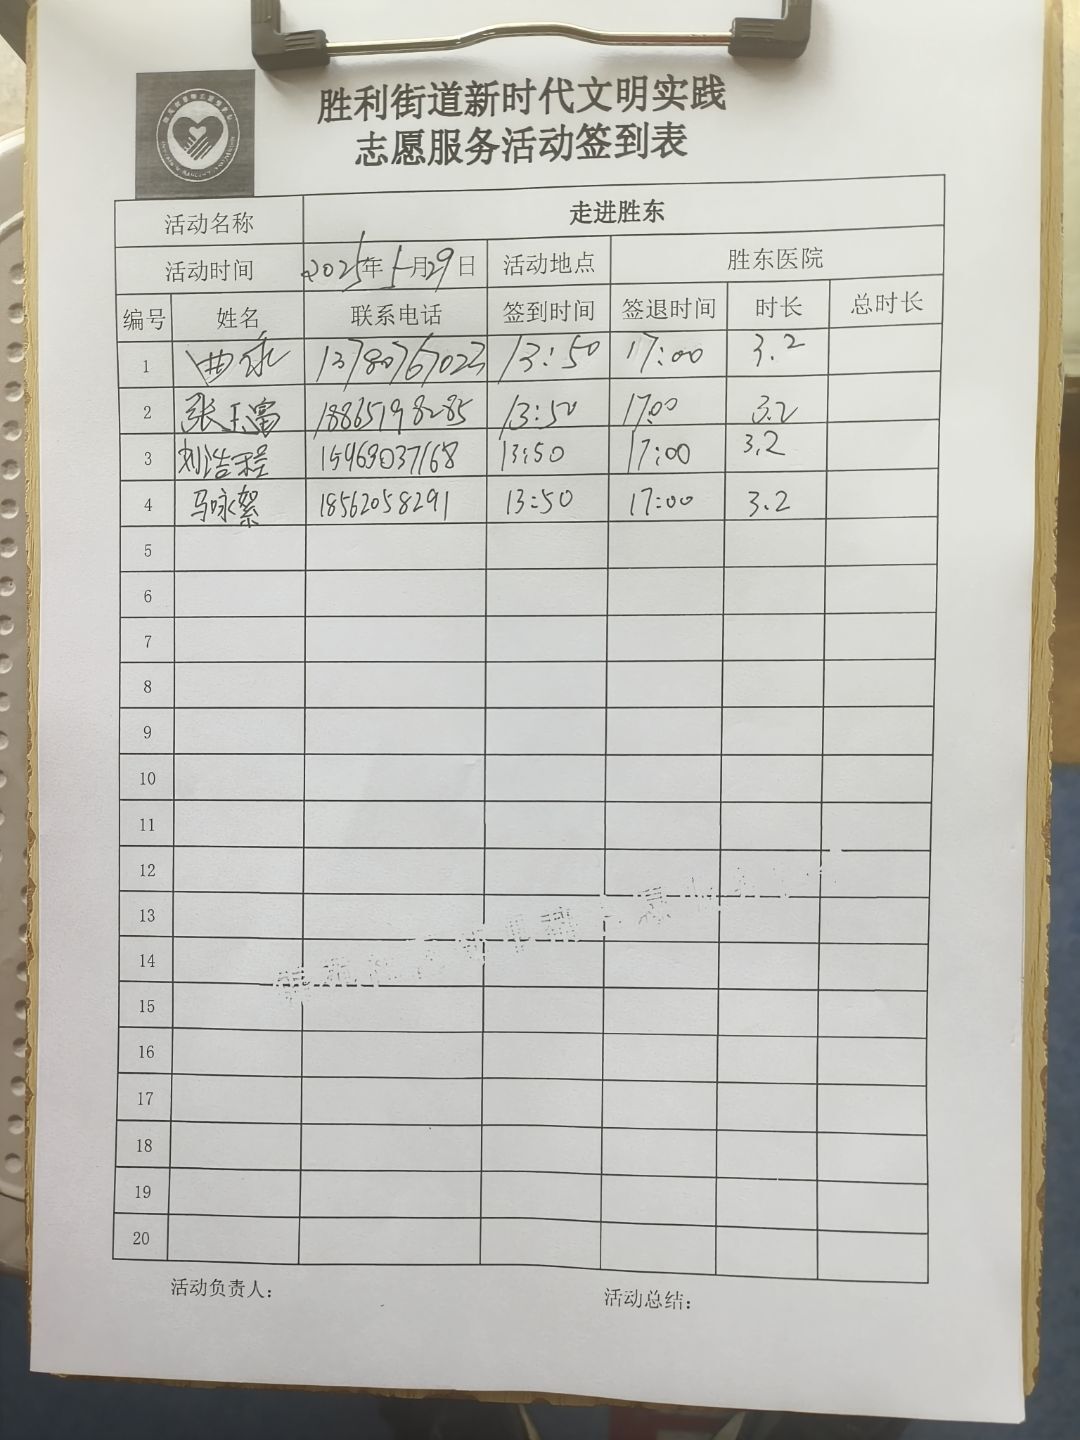 胜利街道新时代文明实践
志愿服务活动签到表
活动名称 走进胜东
活动时间 2025年5月29日 活动地点 胜东医院
编号 姓名 联系电话 签到时间 签退时间 时长 总时长
1 曲永 13780767023 13:50 17:00 3.2
2 张玉富 18865198285 13:50 17:00 3.2
3 刘浩程 15969037168 13:50 17:00 3.2
4 马咏絮 18562058291 13:50 17:00 3.2
5
6
7
8
9
10
11
12
13
14
15
16
17
18
19
20
活动负责人：
活动总结：